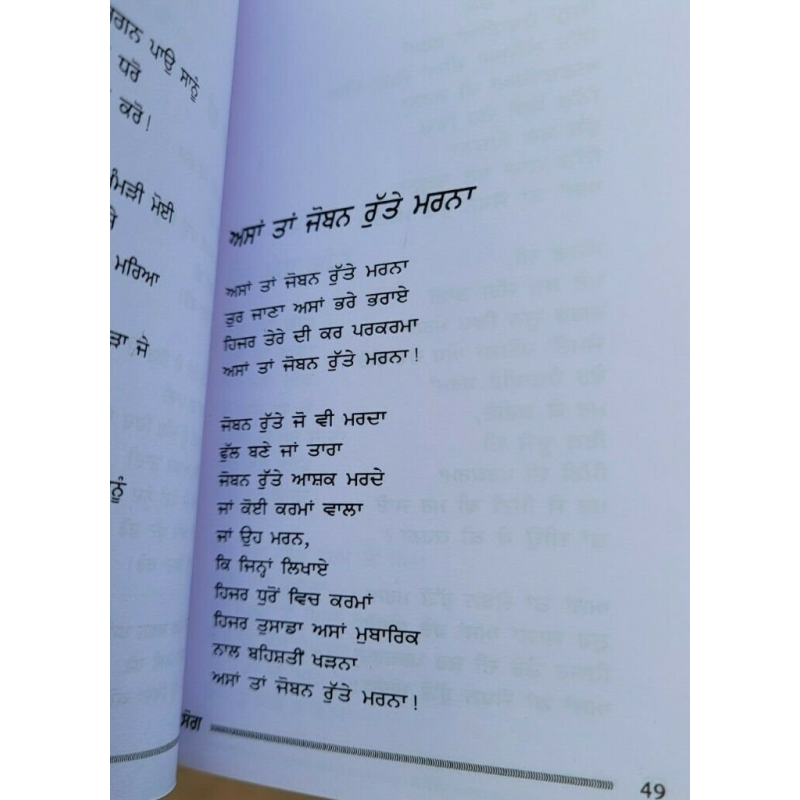 ਪਾਉ ਸਾਨੂੰ
ਧਰੋ
ਕਰੋ!
ਮੋਈ
ਮਰਿਆ
ਜੇ
ਅਸਾਂ ਤਾਂ ਜੋਬਨ ਰੁੱਤੇ ਮਰਨਾ
ਅਸਾਂ ਤਾਂ ਜੋਬਨ ਰੁੱਤੇ ਮਰਨਾ
ਤੁਰ ਜਾਣਾ ਅਸਾਂ ਭਰੇ ਭਰਾਏ
ਹਿਜਰ ਤੇਰੇ ਦੀ ਕਰ ਪਰਕਰਮਾ
ਅਸਾਂ ਤਾਂ ਜੋਬਨ ਰੁੱਤੇ ਮਰਨਾ!
ਜੋਬਨ ਰੁੱਤੇ ਜੋ ਵੀ ਮਰਦਾ
ਫੁੱਲ ਬਣੇ ਜਾਂ ਤਾਰਾ
ਜੋਬਨ ਰੁੱਤੇ ਆਸ਼ਕ ਮਰਦੇ
ਜਾਂ ਕੋਈ ਕਰਮਾਂ ਵਾਲਾ
ਜਾਂ ਉਹ ਮਰਨ,
ਕਿ ਜਿਨ੍ਹਾਂ ਲਿਖਾਏ
ਹਿਜਰ ਧੁਰੋਂ ਵਿਚ ਕਰਮਾਂ
ਹਿਜਰ ਤੁਸਾਡਾ ਅਸਾਂ ਮੁਬਾਰਿਕ
ਨਾਲ ਬਹਿਸ਼ਤੀਂ ਖੜਨਾ
ਅਸਾਂ ਤਾਂ ਜੋਬਨ ਰੁੱਤੇ ਮਰਨਾ!
49